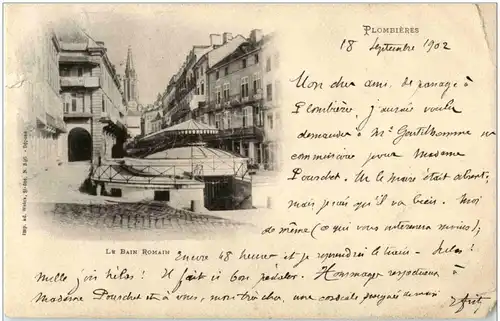 PLOMBIÈRES
18 Septembre 1902
Mon cher ami, de passage à
Plombière, j'aurais voulu
demander à Mr Gentilhomme
commissaire pour Madame
Pourchet. Mr le Maire était absent,
mais je sais qu'il va bien. Moi
de même (ce qui vous intéressera moins).
Encore 48 heures et je reprendrai le train – hélas!
Mille fois hélas! Il fait si bon
Hommages respectueux à
Madame Pourchet et à vous, mon très cher, une cordiale poignée de main
LE BAIN ROMAIN
Imp. Ad. Weick, St-Dié. N. 8